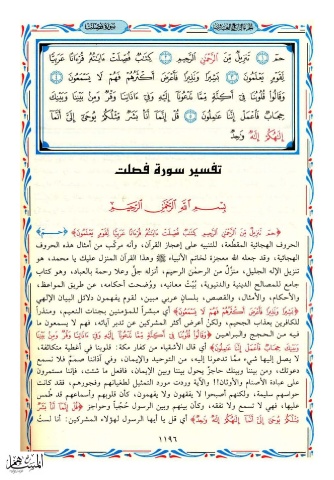 سورة فصلت
حم ۝ تنزيل من الرحمن الرحيم ۝ كتاب فصلت ءاياته قرءانا عربيا
لقوم يعلمون ۝ بشيرا ونذيرا فأعرض أكثرهم فهم لا يسمعون ۝
وقالوا قلوبنا في أكنة مما تدعونا إليه وفي ءاذاننا وقر ومن بيننا وبينك
حجاب فاعمل إننا عاملون ۝ قل إنما أنا بشر مثلكم يوحى إلي أنما
إلهكم إله وحد
تفسير سورة فصلت
بسم الله الرحمن الرحيم
﴿حم تنزيل من الرحمن الرحيم كتاب فصلت ءاياته قرءانا عربيا لقوم يعلمون﴾ ﴿حم﴾
الحروف الهجائية المقطعة، للتنبيه على إعجاز القرآن، وأنه مركب من أمثال هذه الحروف
الهجائية، وقد جعله الله معجزة لخاتم الأنبياء ﷺ وهذا القرآن المنزل عليك يا محمد، هو
تنزيل الإله الجليل، منزل من الرحمن الرحيم، أنزله جل وعلا رحمة بالعباد، وهو كتاب
جامع للمصالح الدينية والدنيوية، بينت معانيه، ووضحت أحكامه، عن طريق المواعظ،
والأحكام، والأمثال، والقصص، بلسان عربي مبين، لقوم يفهمون دلائل البيان الإلهي
﴿بشيرا ونذيرا فأعرض أكثرهم فهم لا يسمعون﴾ أي مبشرا للمؤمنين بجنات النعيم، ومنذرا
للكافرين بعذاب الجحيم، ولكن أعرض أكثر المشركين عن تدبر آياته، فهم لا يسمعون ما
فيه من الحجج والبراهين ﴿وقالوا قلوبنا في أكنة مما تدعونا إليه وفي ءاذاننا وقر ومن بيننا وبينك
حجاب فاعمل إننا عاملون﴾ أي قال الأشقياء من كفار مكة: قلوبنا في أغطية متكاثفة،
لا يصل إليها شيء مما تدعونا إليه، من التوحيد والإيمان، وفي آذاننا صمم فلا نسمع
دعوتك، ومن بيننا وبينك حاجز يحول بيننا وبين الإيمان، فافعل ما شئت، فإننا مستمرون
على عبادة الأصنام والأوثان!! والآية وردت مورد التمثيل لطغيانهم وفجورهم، فقد كانت
حواسهم سليمة، ولكنهم أصبحوا لا يفقهون ولا يفهمون، كأن قلوبهم وأسماعهم قد طمس
عليها، فهي لا تسمع ولا تفقه، وكأن بينهم وبين الرسول حجبا وحواجز ﴿قل إنما أنا بشر
مثلكم يوحى إلي أنما إلهكم إله وحد﴾ أي قل يا أيها الرسول لهؤلاء المشركين: أنا لست
١١٩٦